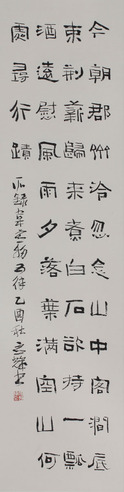 今朝郡齋冷忽念山中客澗底
束荆薪歸來煮白石欲持一瓢
酒遠慰風雨夕落葉滿空山何
處尋行蹟 錄韋应物五律乙酉秋書